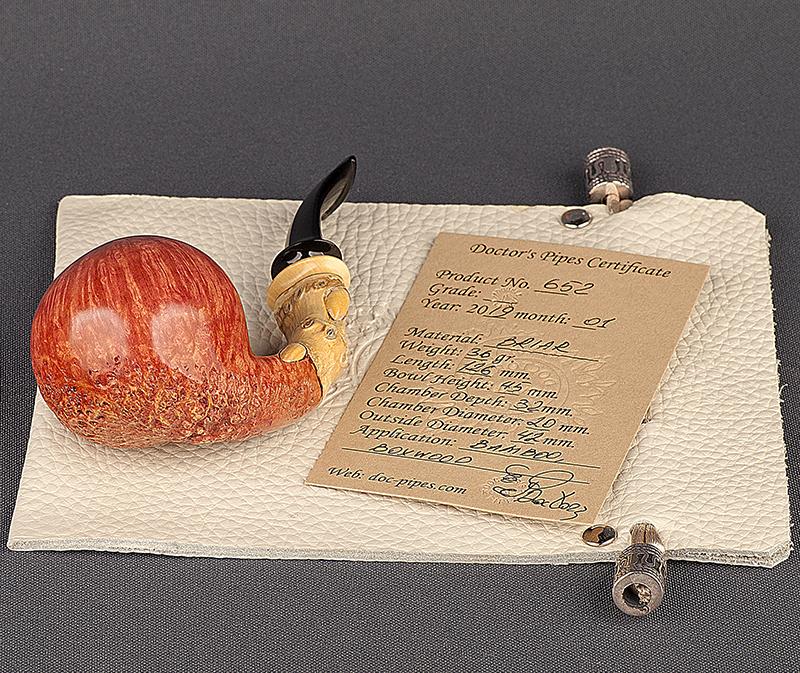 Doctor's Pipes Certificate
Product No. 652
Grade:
Year: 2019 month: 01
Material: BRIAR
Weight: 36 gr.
Length: 126 mm.
Bowl Height: 45 mm.
Chamber Depth: 32 mm.
Chamber Diameter: 20 mm.
Outside Diameter: 42 mm.
Application: BAMBOO
BOXWOOD
Web: doc-pipes.com